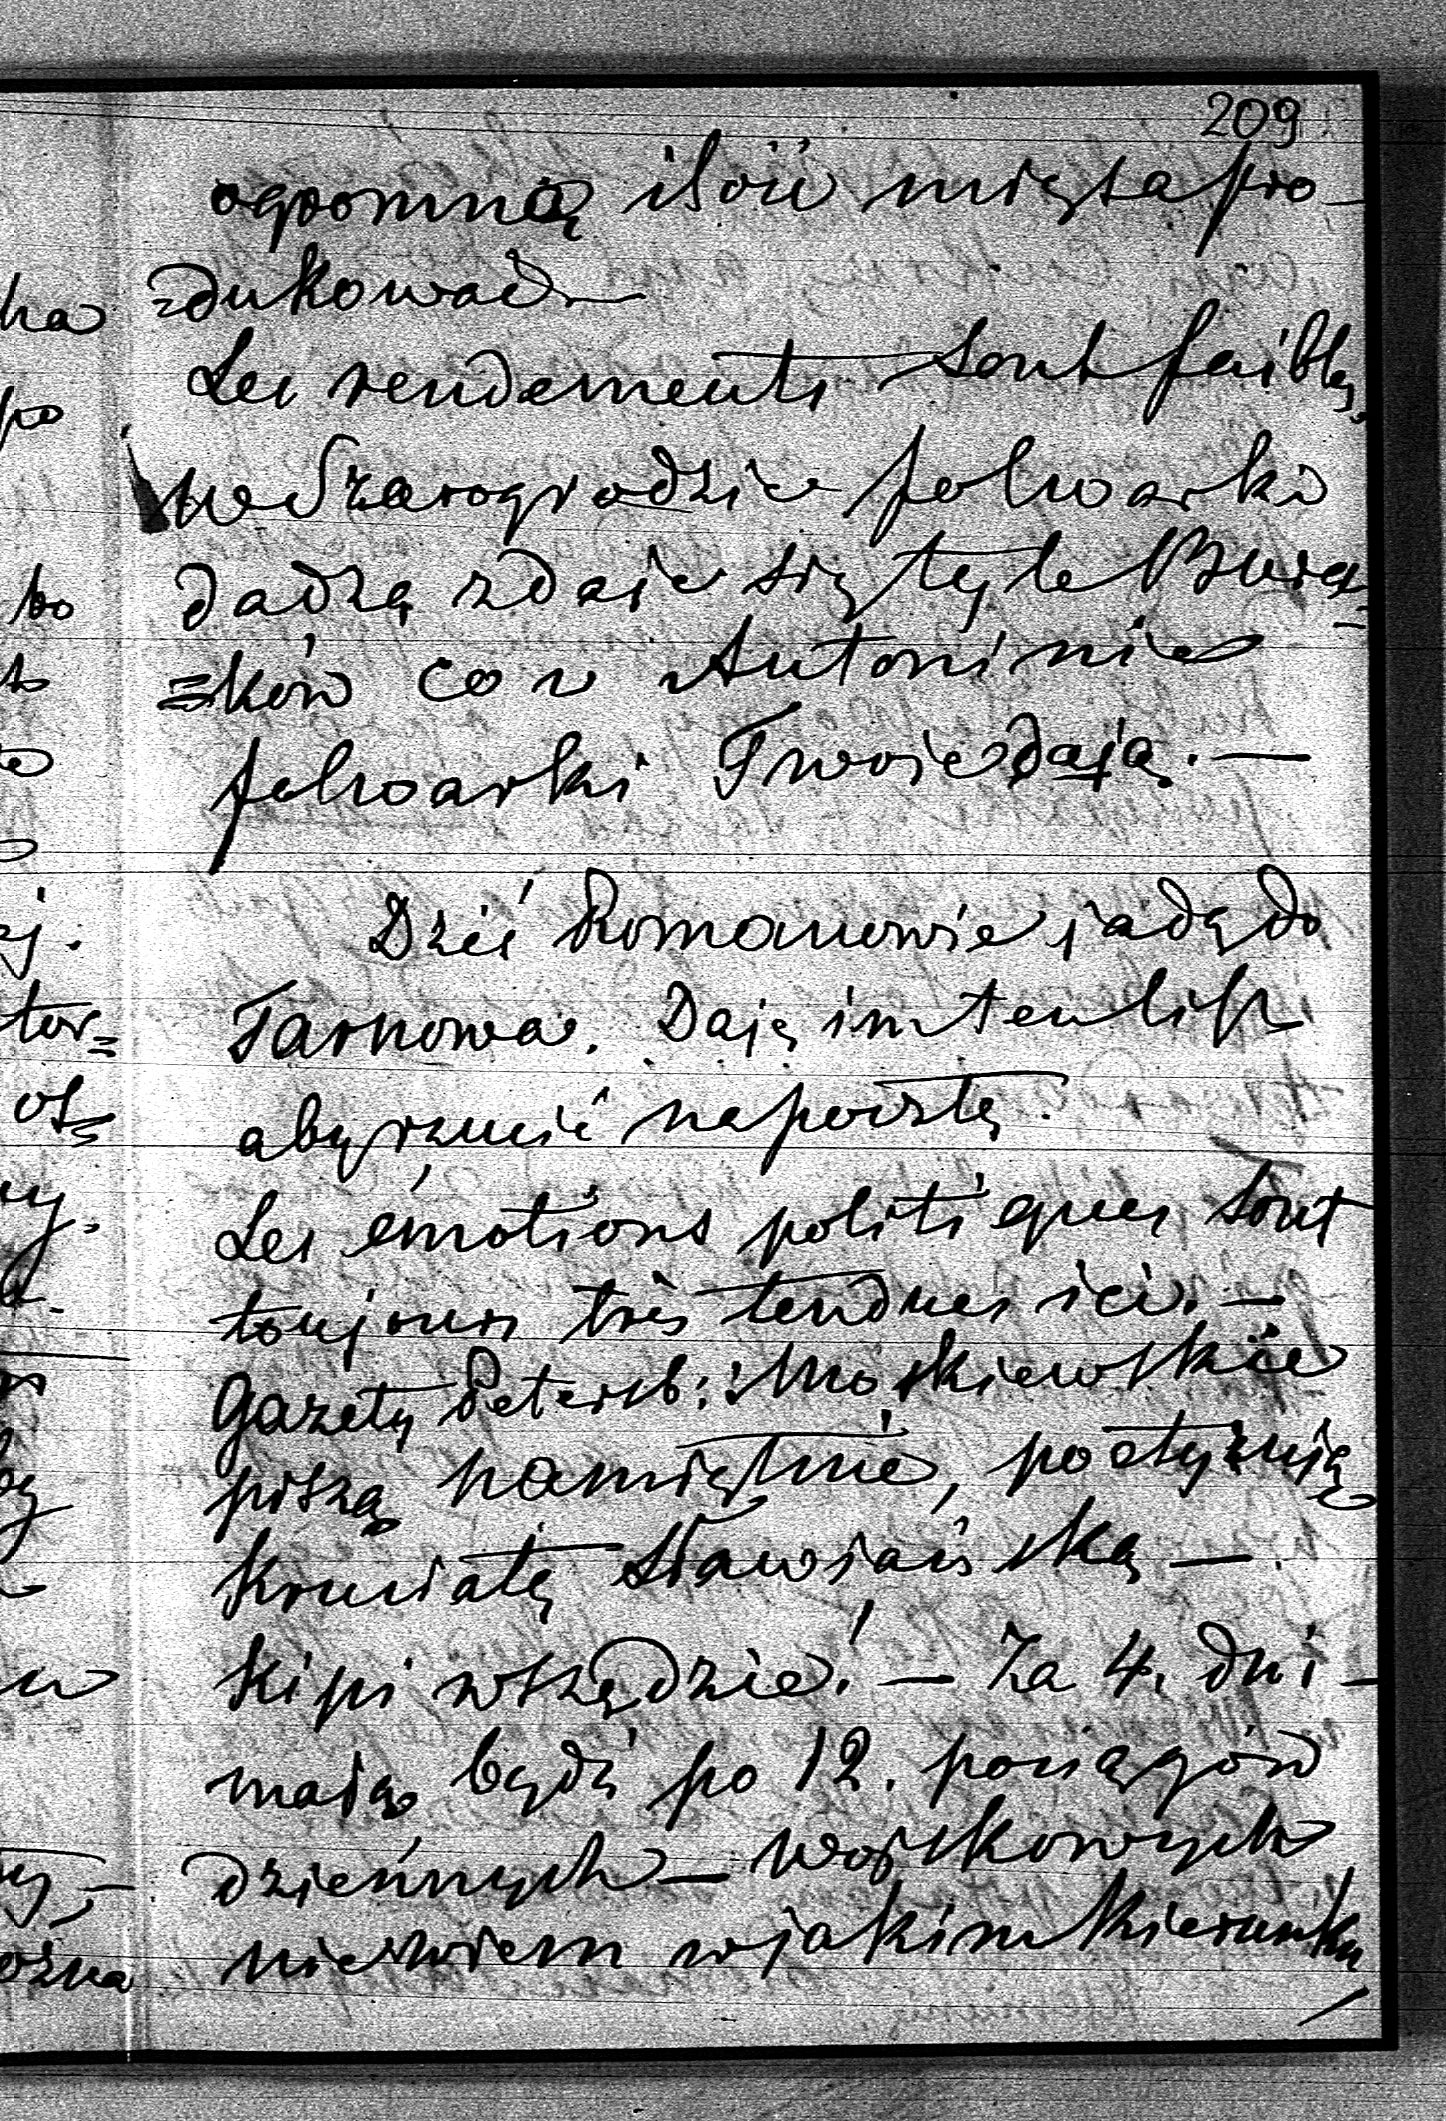 209
ogromną ilość mięsa pro-
=dukować —
Les rendements sont faibles,
we Szarogrodzie folwarki
dadzą zdaje się tyle Bura=
=ków co w Antoninie
folwarki Twoje dają. —
Dziś Romanowie jadą do
Tarnowa. Daję im ten list
aby rzucić na pocztę.
Les émotions politiques sont
toujours très tendues ici. —
Gazety Petersb: i Moskiewskie
piszą namiętnie, poetyzują
kruciatę Sławiańską —
kipi wszędzie! — Za 4. dni -
mają bydź po 12. pociągów
dziennych — wojskowych
nie wiem w jakim kierunku